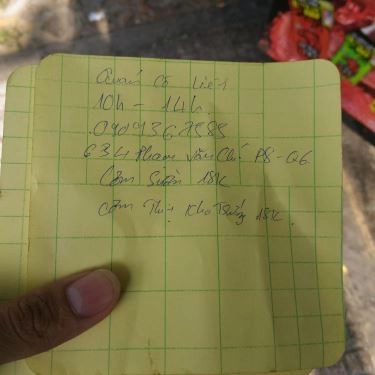 Quán Cô Liên
10h - 14h
0909367585
634 Phạm Văn Chí P8-Q6
Cơm Sườn 18K
Cơm Thịt Kho Trứng 18K.